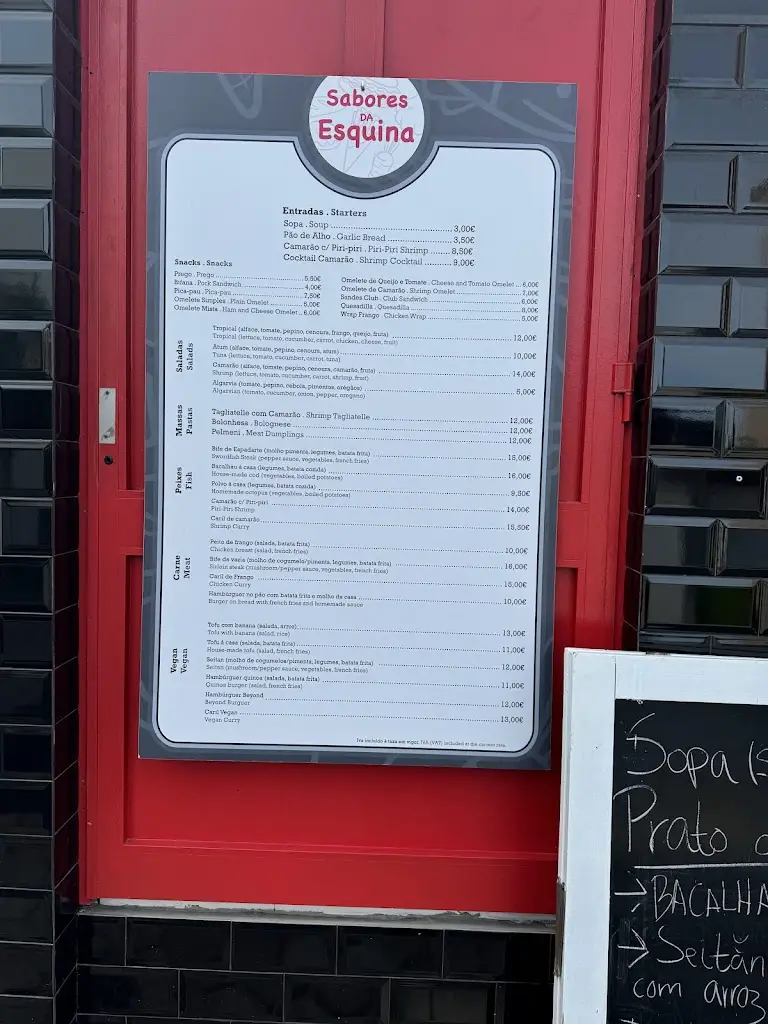 Sabores
DA
Esquina
Entradas . Starters
Sopa . Soup 3,00€
Pão de Alho . Garlic Bread 3,50€
Camarão c/ Piri-piri . Piri-Piri Shrimp 8,50€
Cocktail Camarão . Shrimp Cocktail 9,00€
Snacks . Snacks
Prego . Prego 5,50€
Bifana . Pork Sandwich 4,00€
Pica-pau . Pica-pau 7,50€
Omelete Simples . Plain Omelet 5,00€
Omelete Mista . Ham and Cheese Omelet 6,00€
Omelete de Queijo e Tomate . Cheese and Tomato Omelet 6,00€
Omelete de Camarão . Shrimp Omelet 7,00€
Sandes Club . Club Sandwich 6,00€
Quesadilla . Quesadilla 8,00€
Wrap Frango . Chicken Wrap 5,00€
Saladas
Salads
Tropical (alface, tomate, pepino, cenoura, frango, queijo, fruta)
Tropical (lettuce, tomato, cucumber, carrot, chicken, cheese, fruit) 12,00€
Atum (alface, tomate, pepino, cenoura, atum)
Tuna (lettuce, tomato, cucumber, carrot, tuna) 10,00€
Camarão (alface, tomate, pepino, cenoura, camarão, fruta)
Shrimp (lettuce, tomato, cucumber, carrot, shrimp, fruit) 14,00€
Algarvia (tomate, pepino, cebola, pimentos, orégãos)
Algarvian (tomato, cucumber, onion, pepper, oregano) 5,00€
Massas
Pastas
Tagliatelle com Camarão . Shrimp Tagliatelle 12,00€
Bolonhesa . Bolognese 12,00€
Pelmeni . Meat Dumplings 12,00€
Peixes
Fish
Bife de Espadarte (molho pimenta, legumes, batata frita)
Swordfish Steak (pepper sauce, vegetables, french fries) 15,00€
Bacalhau à casa (legumes, batata cozida)
House-made cod (vegetables, boiled potatoes) 16,00€
Polvo à casa (legumes, batata cozida)
Homemade octopus (vegetables, boiled potatoes) 9,50€
Camarão c/ Piri-piri
Piri-Piri Shrimp 14,00€
Caril de camarão
Shrimp Curry 15,50€
Carne
Meat
Peito de frango (salada, batata frita)
Chicken breast (salad, french fries) 10,00€
Bife da vazia (molho de cogumelo/pimenta, legumes, batata frita)
Sirloin steak (mushroom/pepper sauce, vegetables, french fries) 16,00€
Caril de Frango
Chicken Curry 15,00€
Hambúrguer no pão com batata frita e molho da casa
Burger on bread with french fries and homemade sauce 10,00€
Vegan
Vegan
Tofu com banana (salada, arroz)
Tofu with banana (salad, rice) 13,00€
Tofu à casa (salada, batata frita)
House-made tofu (salad, french fries) 11,00€
Seitan (molho de cogumelos/pimenta, legumes, batata frita)
Seitan (mushroom/pepper sauce, vegetables, french fries) 12,00€
Hambúrguer quinoa (salada, batata frita)
Quinoa burger (salad, french fries) 11,00€
Hambúrguer Beyond
Beyond Burguer 12,00€
Caril Vegan
Vegan Curry 13,00€
Iva incluído à taxa em vigor. IVA (VAT) included at the current rate.
Sopa (S
Prato
→ BACALHA
→ Seităn
com arroz